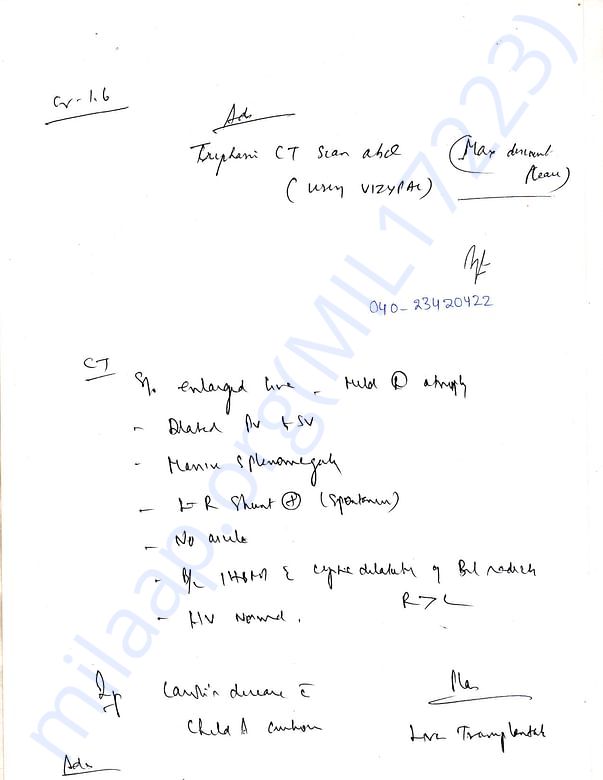 Cr - 1.6
Adv
Triphasic CT Scan abd (Max discount
(using VIZIPAC) please)
040-23420422
CT
S/o enlarged live - Mild (R) atrophy
- Dilated PV & SV
- Massive Splenomegaly
- L-R Shunt (+) (Spontaneous)
- No ascites
- B/L IHBRD c cystic dilatation of Bil radicals
R > L
- HV Normal.
Imp Caroli's disease c Plan
Child A cirrhosis Liver Transplantation
Adv
milaap.org(MIL17223)